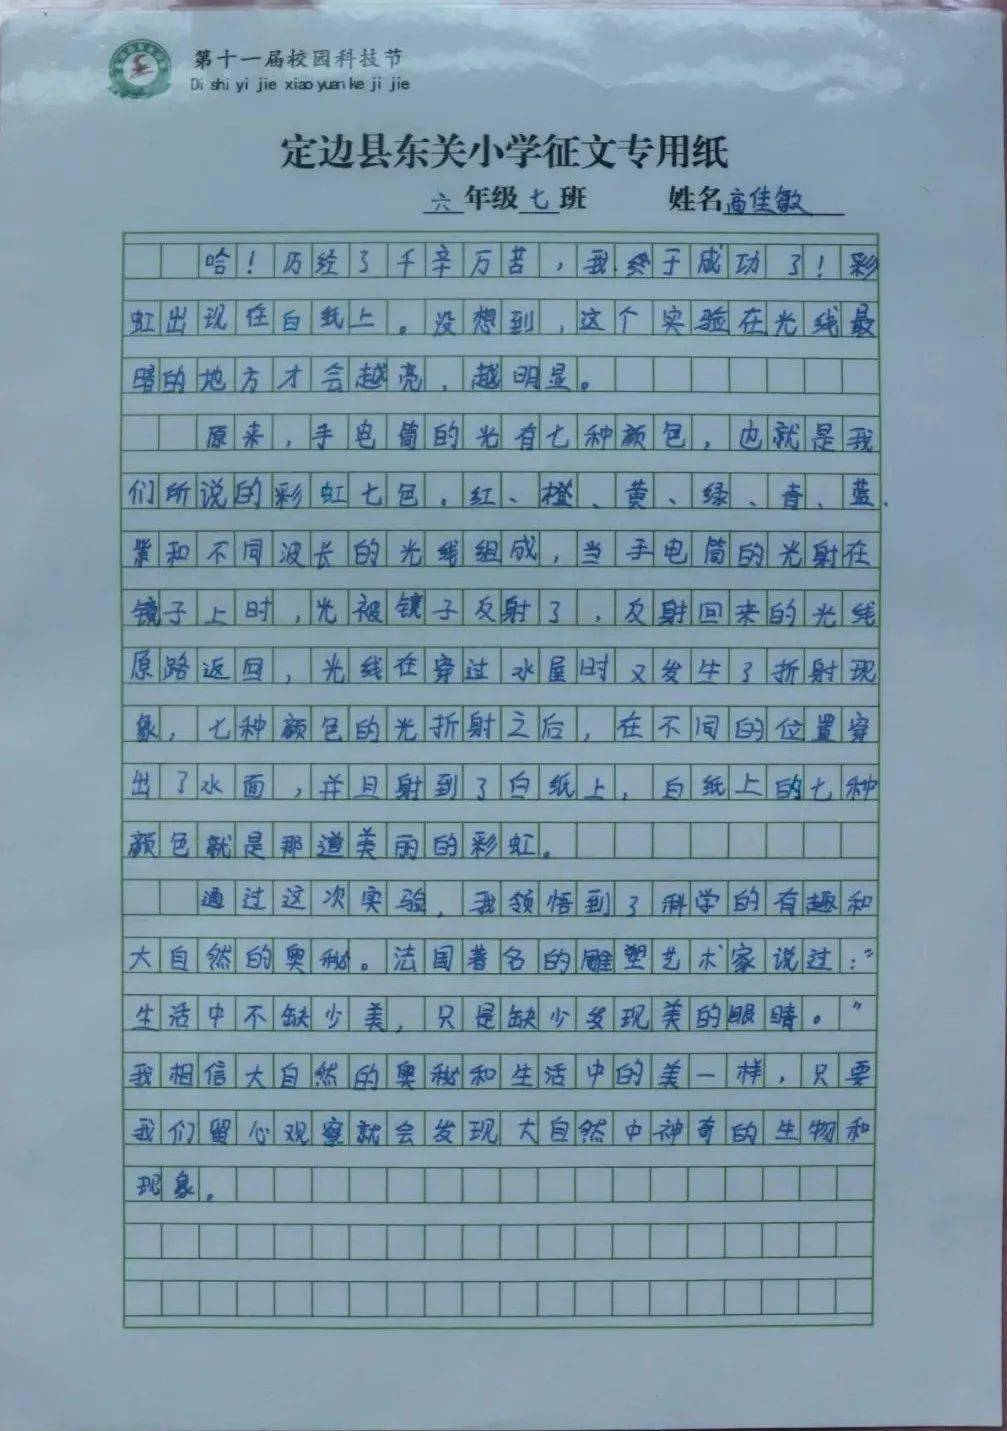 第十一届校园科技节
Di shi yi jie xiao yuan ke ji jie
定边县东关小学征文专用纸
六年级七班 姓名高佳敏
哈！历经了千辛万苦，我终于成功了！彩
虹出现在白纸上。没想到，这个实验在光线最
暗的地方才会越亮，越明显。
原来，手电筒的光有七种颜色，也就是我
们所说的彩虹七色。红、橙、黄、绿、青、蓝、
紫和不同波长的光线组成，当手电筒的光射在
镜子上时，光被镜子反射了，反射回来的光线
原路返回，光线在穿过水屋时又发生了折射现
象，七种颜色的光折射之后，在不同的位置穿
出了水面，并且射到了白纸上，白纸上的七种
颜色就是那道美丽的彩虹。
通过这次实验，我领悟到了科学的有趣和
大自然的奥秘。法国著名的雕塑艺术家说过：“
生活中不缺少美，只是缺少发现美的眼睛。”
我相信大自然的奥秘和生活中的美一样，只要
我们留心观察就会发现大自然中神奇的生物和
现象。